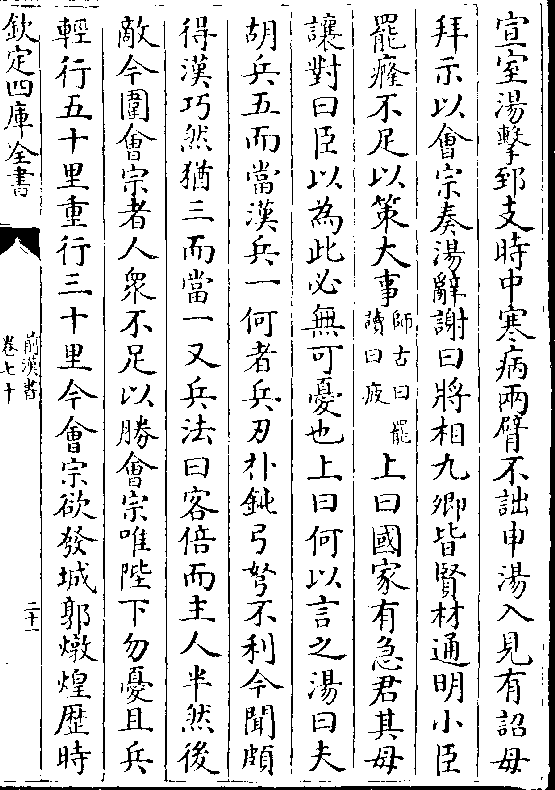 宣室湯擊郅支時中寒病兩臂不詘申湯入見有詔毋
拜示以會宗奏湯辭謝曰將相九卿皆賢材通明小臣
罷癃不足以策大事師古曰罷讀曰疲上曰國家有急君其毋
讓對曰臣以為此必無可憂也上曰何以言之湯曰夫
胡兵五而當漢兵一何者兵刃朴鈍弓弩不利今聞頗
得漢巧然猶三而當一又兵法曰客倍而主人半然後
敵今圍會宗者人衆不足以勝會宗唯陛下勿憂且兵
輕行五十里重行三十里今會宗欲發城郭燉煌歷時
欽定四庫全書
前漢書
卷七十
二十一